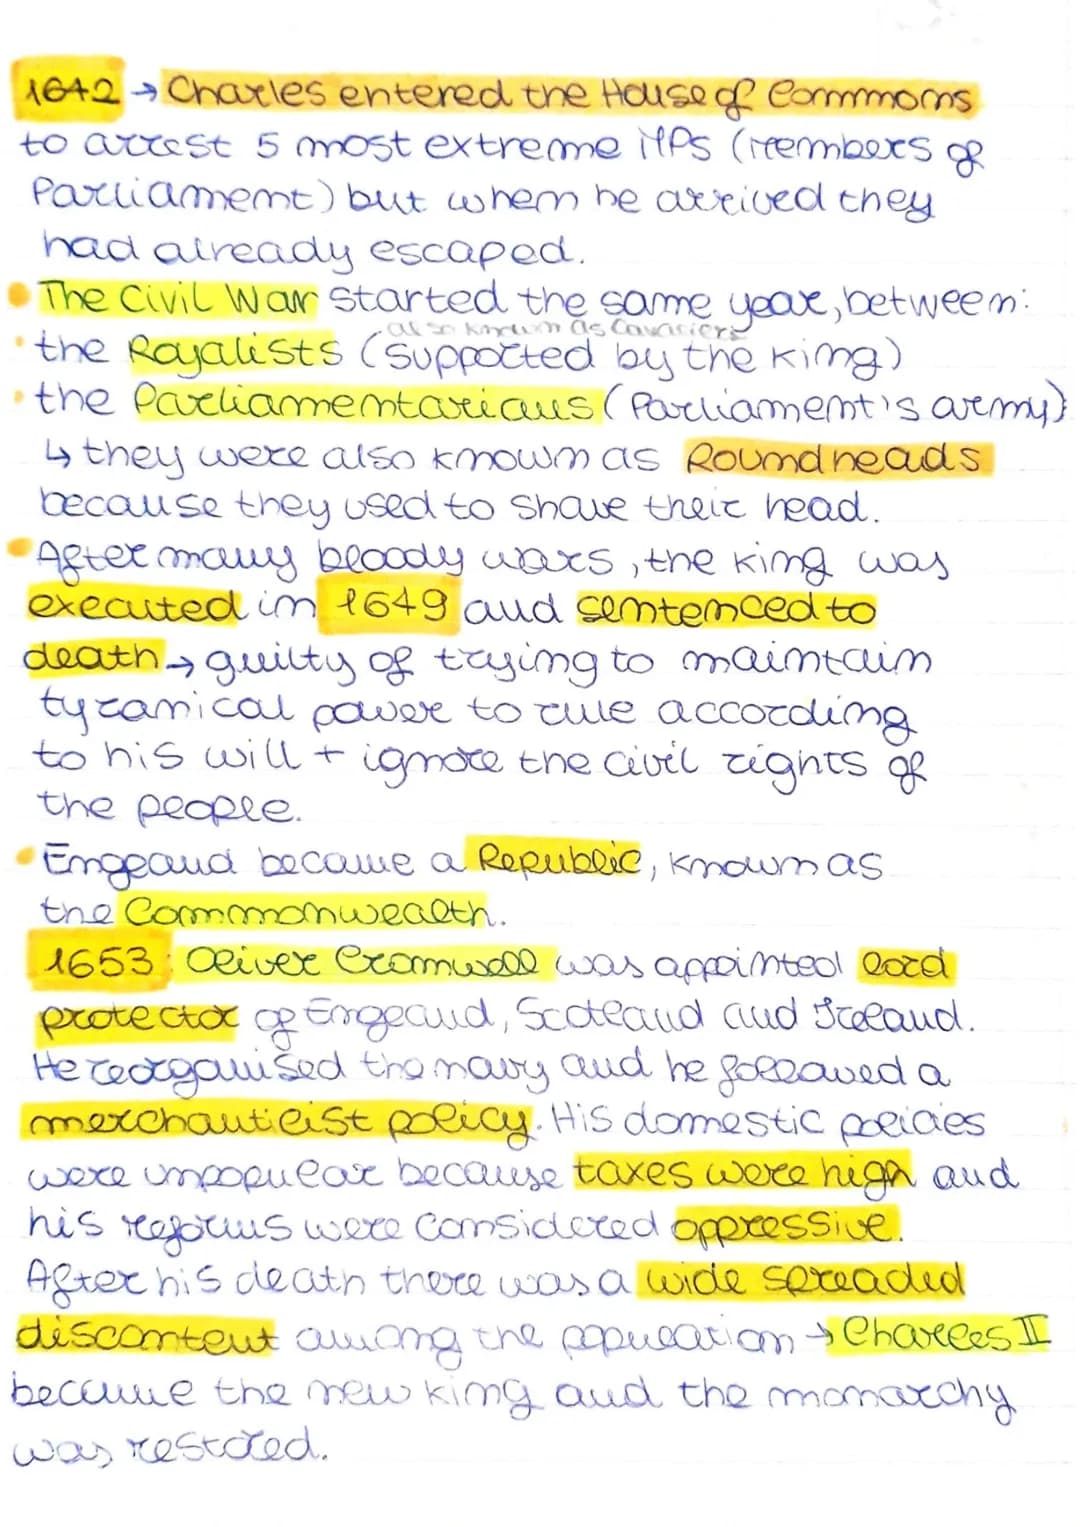 1642 → Charles entered the House of Commmons
to arrest 5 most extreme MPs (Members of
Parliament) but when he arrived they
had already escaped.
• The Civil War started the same year, between:
also known as Cavaliers
• the Royalists (supported by the King)
• the Parliamentarians (Parliament's army)
↳ they were also known as Roundheads
because they used to shave their head.
• After many bloody wars, the King was
executed in 1649 and sentenced to
death → guilty of trying to maintain
tyranical power to rule according
to his will + ignore the civil rights of
the people.
• England became a Republic, known as
the Commonwealth.
1653: Oliver Cromwell was appointed lord
protector of England, Scotland and Ireland.
He reorganised the navy and he followed a
merchantilist policy. His domestic policies
were unpopular because taxes were high and
his reforms were considered oppressive.
After his death there was a wide spreaded
discontent among the population → Charles II
became the new king and the monarchy
was restored.